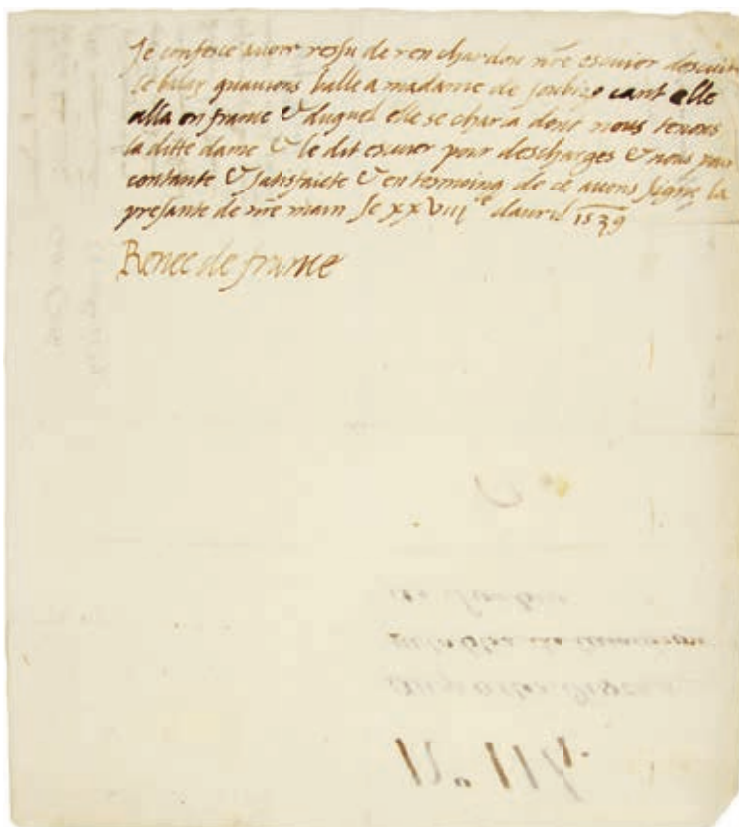 Je confesce avoir ressu de ren chardon nre escuier descuirie
le balay quavions balle a madame de soubize cant elle
alla en france & duquel elle se charia dont nous tenons
la ditte dame & le dit escuier pour descharges & nous
contante & satisfaicte & en tesmoing de ce avons signe la
presante de nre main le xxviiie davril 1539
Renee de france
No 114.